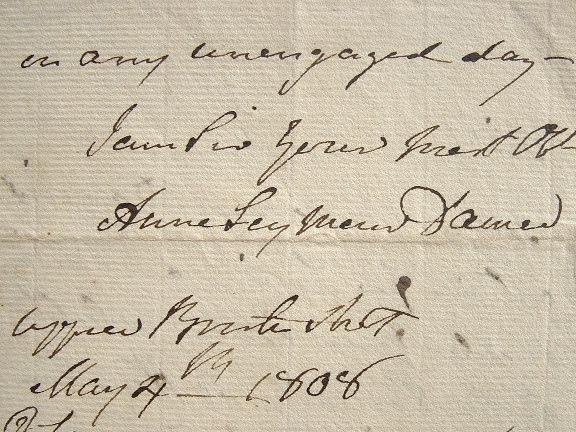 on any unengaged day —
I am Sir Your most Obt
Anne Seymour Damer
Upper Brook Street.
May 4th 1808